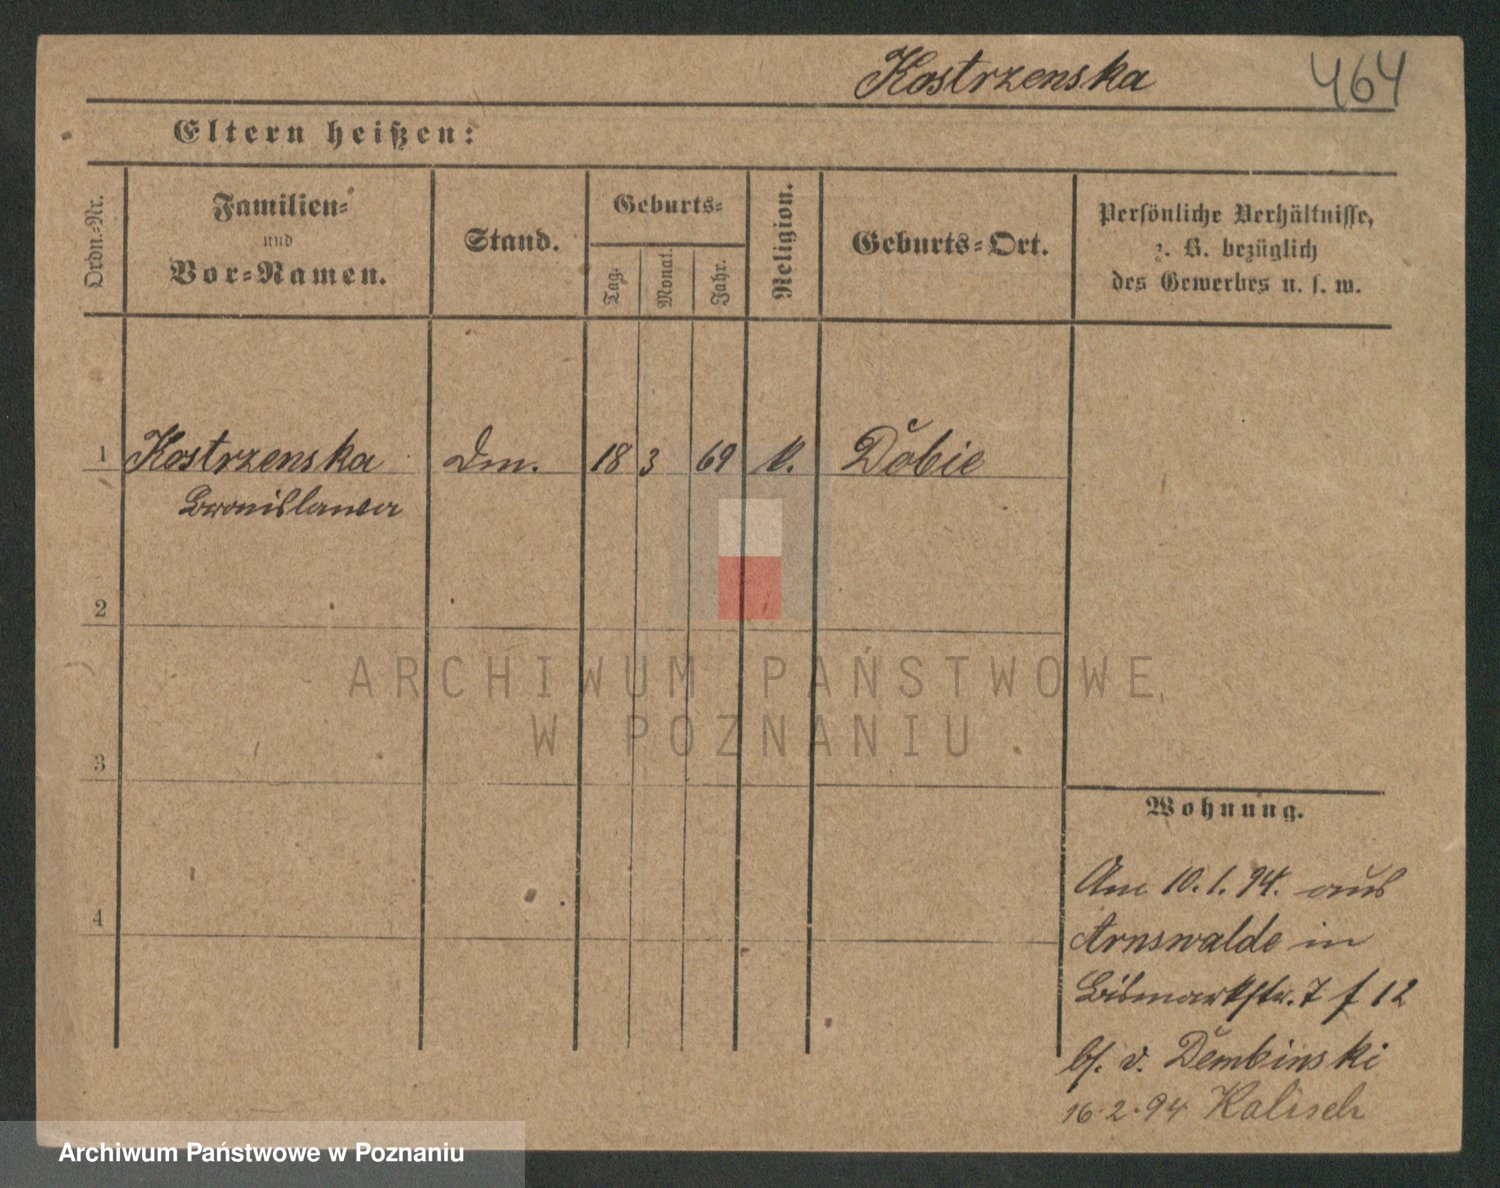 Kostrzenska 464
Eltern heißen:
Ordn.-Nr.
Familien-
und
Vor-Namen.
Stand.
Geburts-
Tag.
Monat.
Jahr.
Religion.
Geburts-Ort.
Persönliche Verhältnisse,
z. B. bezüglich
des Gewerbes u. s. w.
1 Kostrzenska 18 3 69 Dobie
Bronislawa
2
ARCHIWUM PAŃSTWOWE
W POZNANIU
3
Wohnung.
Am 10.1.94. aus
4
Arnswalde in
Bismarkstr. 7 f 12
b/. v. Dembinski
16.2.94 Kalisch
Archiwum Państwowe w Poznaniu